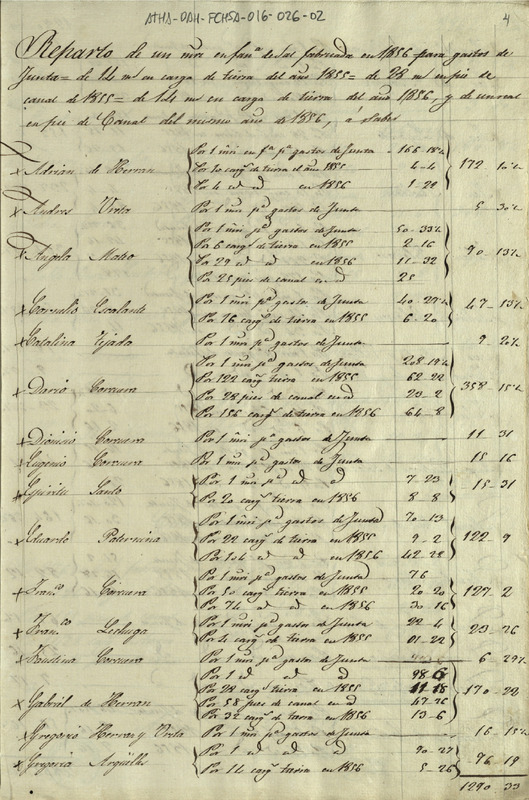 ATHA-DAH-FCHSA-016-026-02
4
Reparto de un mri en fanª de Sal fabricada en 1856 para gastos de
Junta = de 14 ms en carga de tierra del año 1855 = de 28 ms en pie de
canal de 1855 = de 14 ms en carga de tierra del año 1856, y de un real
en pie de Canal del mismo año de 1856, a saber
Adrian de Herran
Por 1 mri en fª pª gastos de Junta
Por 10 cargs de tierra el año 1855 4-4
Por 4 id id en 1856 1-22
172
Andres Urita Por 1 mri pª gastos de Junta 5
Angela Mateo
Por 1 mri pª gastos de Junta
Por 6 cargs de tierra en 1855 2-16
Por 29 id id en 1856 11-32
Por 25 pies de canal en id 25
90
Cornelio Escalante
Por 1 mri pª gastos de Junta
Por 16 cargs de tierra en 1855 6-20
47
Catalina Tejada Por 1 mri pª gastos de Junta 9
Dario Corcuera
Por 1 mri pª gastos de Junta
Por 122 cargs tierra en 1855
Por 28 pies de canal en id 23-2
Por 156 cargs de tierra en 1856 64-8
358
Dionisio Corcuera Por 1 mri pª gastos de Junta 11-31
Eugenio Corcuera Por 1 mri pª gastos de Junta 15-16
Espiritu Santo
Por 1 mri pª id id 7-23
Por 20 cargs tierra en 1856 8-8
15-31
Eduardo Paternina
Por 1 mri pª gastos de Junta 70-13
Por 22 cargs de tierra en 1855 9-2
Por 104 id id en 1856
122-9
Franco Corcuera
Por 1 mri pª gastos de Junta 76
Por 50 cargs de tierra en 1855 20-20
Por 74 id id en 1856 30-16
127-2
Franco Lechuga
Por 1 mri pª gastos de Junta 22-4
Por 4 cargs de tierra en 1855 01-22
23-26
Faustina Corcuera Por 1 mri pª gastos de Junta 6
Gabriel de Herran
Por 1 id id id 98-6
Por 28 cargs tierra en 1855 11-18
Por 58 pies de canal en id 47-26
Por 32 cargs de tierra en 1856 13-6
170-22
Gregorio Herran y Urita Por 1 mri pª gastos de Junta 16
Gregoria Arguelles
Por 1 id id id 70-27
Por 14 cargs tierra en 1856 5-26
76-19
1290-33